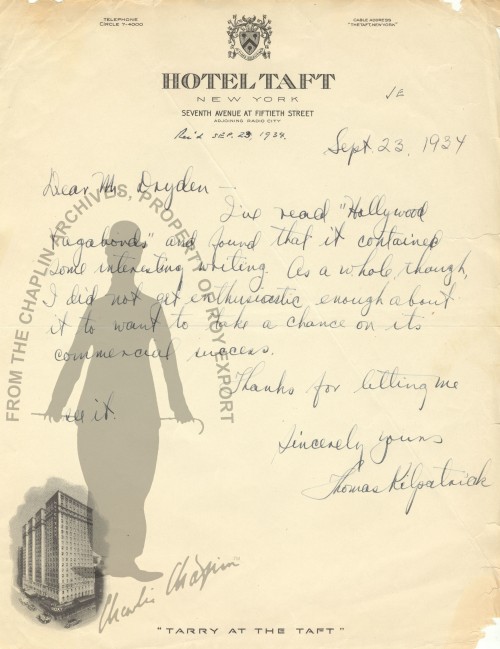 TELEPHONE
CIRCLE 7-4000
CABLE ADDRESS
"THETAFT, NEW YORK"
HOTEL TAFT
NEW YORK
SEVENTH AVENUE AT FIFTIETH STREET
ADJOINING RADIO CITY
Rec'd SEP. 23, 1934.
Sept 23, 1934
Dear Mr Dryden —
I've read "Hollywood
Vagabonds" and found that it contained
some interesting writing. As a whole, though,
I did not get enthusiastic enough about
it to want to take a chance on its
commercial success.
Thanks for letting me
see it.
Sincerely yours
Thomas Kilpatrick
FROM THE CHAPLIN ARCHIVES, PROPERTY OF ROY EXPORT
Charlie Chaplin
"TARRY AT THE TAFT"